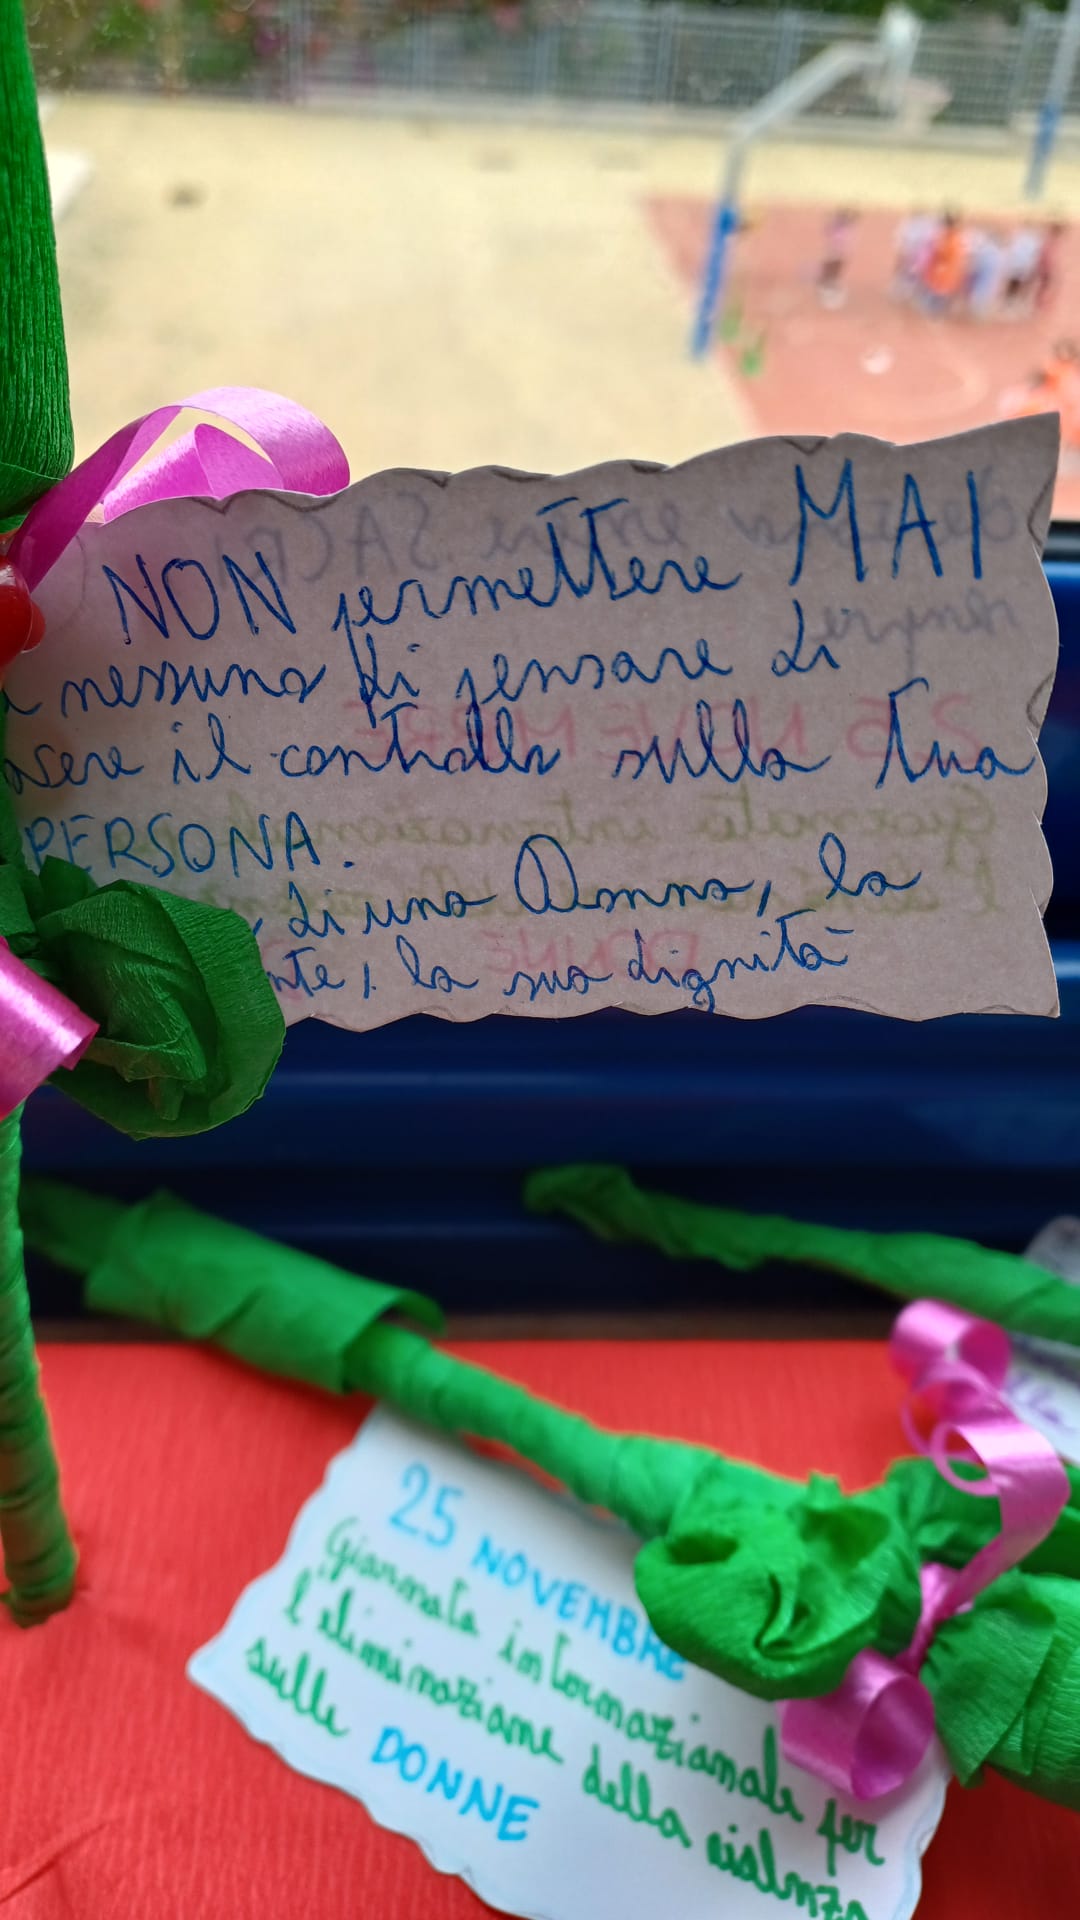 NON permettere MAI
nessuno di pensare di
il controllo sulla tua
PERSONA.
, di una Donna, la
nte, la sua dignità
25 NOVEMBRE
Giornata internazionale per
l'eliminazione della violenza
sulle DONNE